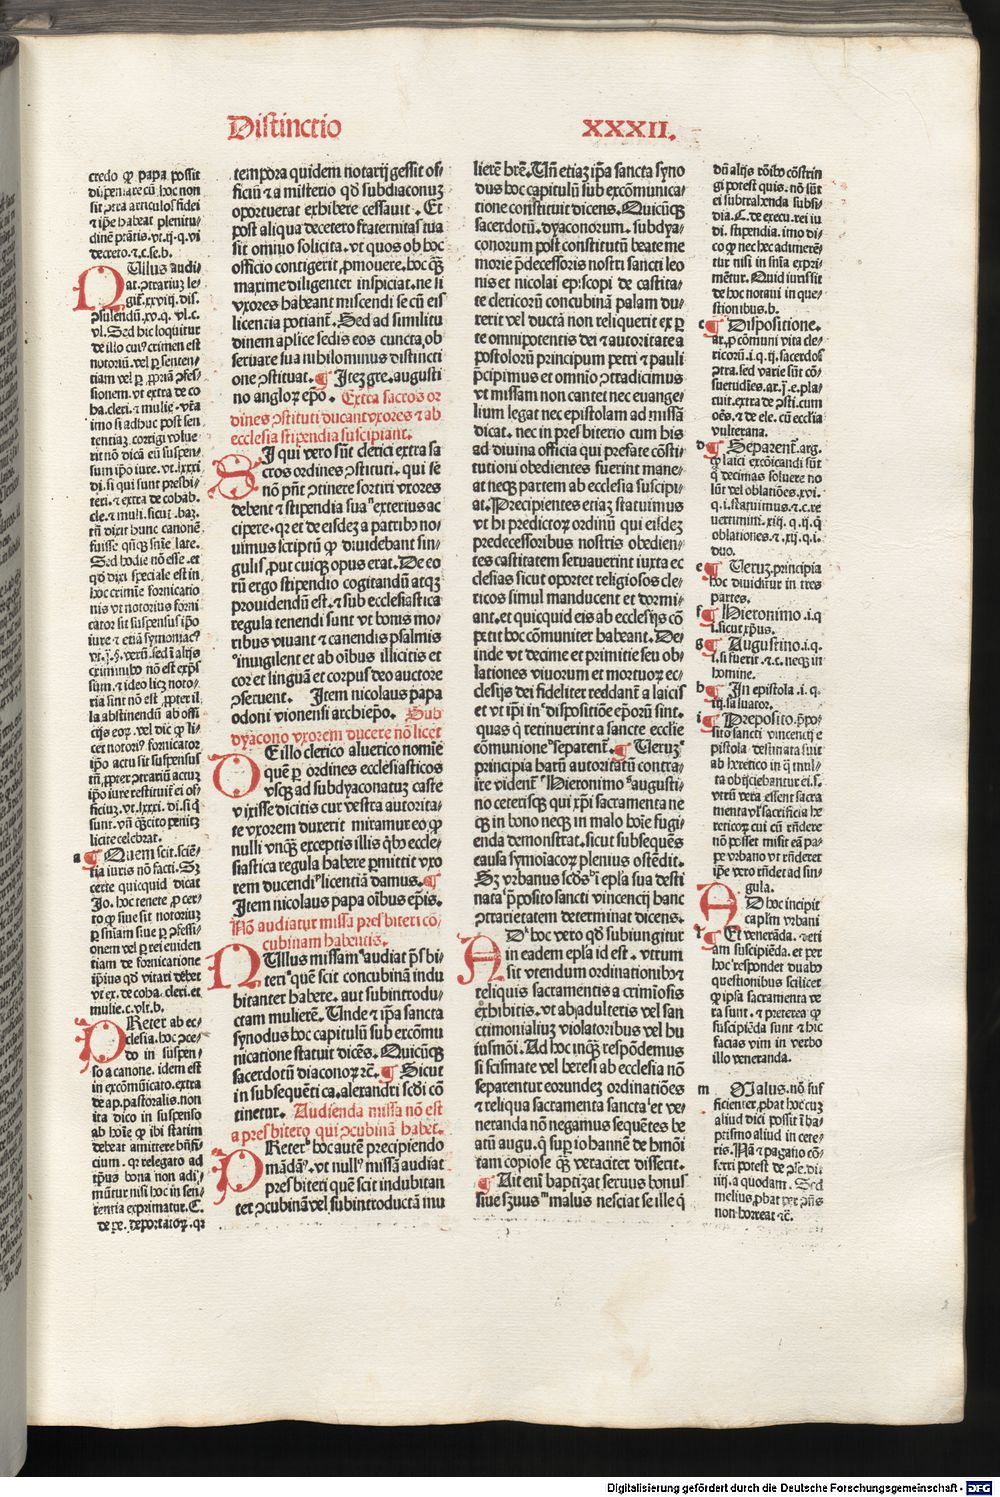 Distinctio
XXXII.
credo ꝙ papa possit
dispensare cū hoc non
sit ꝯtra articulos fidei
et ip̄e habeat plenitu⸗
dinē p̄tatis.vt.ij.q.vi
decreto.⁊.c.se.b.
Nullus audi⸗
at.ꝯtrariuz le⸗
giť.xxviij.dis.
ꝯsulendū.xv.q.vl.c.
vl.Sed hic loquitur
de illo cuiꝰ crimen est
notoriū.vel ꝑ senten⸗
tiam vel ꝑ ꝓpriā ꝯfes⸗
sionem.vt extra de co
ha.cleri.⁊ mulie.vr̄a
imo si adhuc post sen
tentiaȝ corrigi volue
rit nō dicā eū suspen⸗
sum ip̄o iure.vt.lxxxi
di.si qui sunt presbi⸗
teri.⁊ extra de cohab.
cle.⁊ muli.sicut.haȝ.
tn̄ dixit hunc canonē
fuisse quāqȝ sn̄ie late.
Sed hodie nō esse.et
qd̄ dixi speciale est in
hoc crimīe fornicatio
nis vt notorius forni
cator sit suspensus ip̄o
iure ⁊ etiā symoniacꝰ
criminibꝰ nō est exp̄s
sum.⁊ ideo licȝ noto⸗
ria sint nō est ꝓpter il
la abstinendū ab offi
cijs eorȝ.vel dic ꝙ li⸗
cet notoriꝰ fornicator
ip̄o actu sit suspensus
tn̄ ꝓpter ꝯtrariū actuȝ
ip̄o iure restituiť ei of⸗
ficiuȝ.vt.lxxxi.di.si q̄
sunt.vn̄ q̄scito penitȝ
licite celebrat.
a ¶ Quem scit.sciē⸗
tia iuris nō facti.Sȝ
certe quicquid dicat
Jo.hoc tenete ꝓ cer⸗
to ꝙ siue sit notoriuȝ
ꝑ sn̄iam siue ꝑ ꝯfessi⸗
onem vel ꝑ rei euiden
tiam de fornicatione
ip̄ius qd̄ vitari debet
vt ex.de coha.cleri.et
mulie.c.vlt.b.
Preter ab ec⸗
clesia.hoc ꝓce⸗
do in suspen⸗
so a canone.idem est
in excōmūicato.extra
de ap.pastoralis.non
ita dico in suspenso
ab hoīe ꝙ ibi statim
debeat amittere bn̄fi
cium.qꝛ relegato ad
tp̄us bona non adi⸗
mūtur nisi hoc in sen⸗
tentia exprimatur.C.
de re.deportatoꝝ.qꝛ
tempora quidem notarij gessit of⸗
ficiū ⁊ a misterio qd̄ subdiaconuȝ
oportuerat exhibere cessauit.Et
post aliqua decetero fraternitas tua
sit omnino solicita.vt quos ob hoc
officio contigerit ꝓmouere.hoc qȝ̄
maxime diligenter inspiciat.ne si
vxores habeant miscendi se cū eis
licencia potianť.Sed ad similitu
dinem aplice sedis eos cuncta ob
seruare sua nihilominus distincti
one ꝯstituat.¶ Iteȝ gre.augusti
no angloꝝ ep̄o.Extra sacros or
dines ꝯstituti ducant vxores ⁊ ab
ecclesia stipendia suscipiant.
Si qui vero sūt clerici extra sa
cros ordines ꝯstituti.qui se
nō pn̄t ꝯtinere sortiri vxores
debent ⁊ stipendia sua exterius ac
cipere.qꝛ et de eisdeȝ a patribꝰ no⸗
uimus scriptū ꝙ diuidebant sin⸗
gulis ꝓut cuiqȝ opus erat.De eo
rū ergo stipendio cogitandū atqȝ
prouidendū est.⁊ sub ecclesiastica
regula tenendi sunt vt bonis mo⸗
ribus viuant ⁊ canendis psalmis
inuigilent et ab oībus illicitis et
cor et linguā et corpus deo auctore
ꝯseruent. Item nicolaus papa
odoni vionensi archiep̄o. Sub
dyacono vxorem ducere nō licet
De illo clerico aluerico nomīe
quē ꝑ ordines ecclesiasticos
vsqȝ ad subdyaconatuȝ caste
vixisse dicitis cur vestra autorita⸗
te vxorem duxerit miramur eo ꝙ
nulli vnqȝ exceptis illis qb̄ꝰ eccle⸗
siastica regula habere ꝑmittit vxo
rem ducendi licentiā damus.¶
Item nicolaus papa oībus ep̄is.
Nō audiatur missa presbiteri cō⸗
cubinam habentis.
Nullus missam audiat p̄sbi⸗
teri quē scit concubinā indu
bitanter habere.aut subintrodu⸗
ctam mulierē.Unde ⁊ ip̄a sancta
synodus hoc capitulū sub excōmu
nicatione statuit dicēs.Quicūqȝ
sacerdotū diaconoꝝ ꝛc̄.¶ Sicut
in subsequēti ca.alexandri scd̄i cō
tinetur. Audienda missa nō est
a presbitero qui ꝯcubinā habet.
Preter hoc autē precipiendo
mādāꝰ.vt nullꝰ missā audiat
presbiteri quē scit indubitan
ter ꝯcubinā vel subintroductā mu
lierē hr̄e.Un̄ etiaȝ ip̄a sancta syno
dus hoc capitulū sub excōmunica⸗
tione constituit dicens.Quicūqȝ
sacerdotū.dyaconorum.subdya⸗
conorum post constitutū beate me
morie p̄decessoris nostri sancti leo
nis et nicolai episcopi de castita⸗
te clericorū concubinā palam du⸗
xerit vel ductā non reliquerit ex ꝑ
te omnipotentis dei ⁊ autoritate a
postoloꝝ principum petri ⁊ pauli
p̄cipimus et omnīo ꝯtradicimus
vt missam non cantet nec euange⸗
lium legat nec epistolam ad missā
dicat.nec in presbiterio cum his
ad diuina officia qui prefate cōsti⸗
tutioni obedientes fuerint mane⸗
at neqȝ partem ab ecclesia suscipi⸗
at.Precipientes etiaȝ statuimus
vt hi predictoꝝ ordinū qui eisdeȝ
predecessoribus nostris obedien⸗
tes castitatem seruauerint iuxta ec
clesias sicut oportet religiosos cle⸗
ricos simul manducent et dormi⸗
ant.et quicquid eis ab ecclesijs cō
petit hoc cōmuniter habeant.De⸗
inde vt decime et primitie seu ob⸗
lationes viuorum et mortuoꝝ ec⸗
clesijs dei fideliter reddant̄ a laicis
et vt ip̄i in dispositiōe ep̄orū sint.
quas q̄ retinuerint a sancte ecclie
cōmunione separent̄.¶ Ueruȝ
principia harū autoritatū contra⸗
ire videnť Hieronimo augusti⸗
no ceterisqȝ qui xp̄i sacramenta ne
qȝ in bono neqȝ in malo hoīe fugi⸗
enda demonstrat.sicut subsequēs
causa symoīacoꝝ plenius ostēdit.
Sȝ vrbanus scd̄s ī epl̄a sua desti
nata p̄posito sancti vincentij hanc
ꝯtrarietatem determinat dicens.
Ad hoc vero qd̄ subiungitur
in eadem epl̄a id est.vtrum
sit vtendum ordinationibꝰ ⁊
reliquis sacramentis a crimīosis
exhibitis.vt ab adulteris vel san
ctimonialiuȝ violatoribus vel hu
iusmōi.Ad hoc inqȝ respōdemus
si scismate vel heresi ab ecclesia nō
separentur eorundeȝ ordinatiōes
⁊ reliqua sacramenta sancta et ve⸗
neranda nō negamus sequētes be
atū augu.q̄ suꝑ iohannē de hmōi
tam copiose qȝ̄ veraciter disserit.
¶ Ait enī baptizat seruus bonus
siue seruus malus nesciat se ille q̄
dū alijs rōībꝰ cōstrin
gi potest quis.nō sūt
ei subtrahenda subsi⸗
dia.C.de execu.rei iu
di.stipendia.imo di⸗
co ꝙ nec hec adimerē⸗
tur nisi in sn̄ia expri⸗
mētur.Quid iurissit
de hoc notaui in que⸗
stionibus.b.
c ¶ Dispositione.
ar.ꝓ cōmuni vita cle⸗
ricorū.i.q.ij.sacerdos
ꝯtra.sed varie sūt cō⸗
suetudīes.ar.j.e.pla⸗
cuit.extra de ꝯsti.cum
oēs.⁊ de ele.cū ecclia
vulterana.
d ¶ Separenť.arg.
ꝙ laici excōicandi sūt
q̄ decimas soluere no
lūt vel oblatiōes.xvi.
q.i.statuimus.⁊.c.re
uertimini.xiij.q.ij.q̄
oblationes.⁊.xij.q.i.
duo.
e ¶ Ueruȝ.principia
hoc diuiditur in tres
partes.
f ¶ Hieronimo.i.q
i.sicut xp̄us.
g ¶ Augustino.i.q.
i.si fuerit.⁊.c.neqȝ in
homine.
h ¶ In epistola.i.q.
iij.saluator.
i ¶ Preposito.p̄po⸗
sito sancti vincentij e
pistola destinata fuit
ab heretico in q̄ mul⸗
ta obijciebantur ei.s.
vtrū vera essent sacra
menta vl̓ sacrificia he
reticoꝝ cui cū rn̄dere
nō posset misit eā pa⸗
pe vrbano vt rn̄deret
ip̄e vero rn̄det ad sin⸗
gula.
Ad hoc incipit
capl̄m vrbani
l ¶ Et venerāda.veti
am suscipiēda.et per
hoc respondet duabꝰ
questionibus scilicet
ꝙ ip̄sa sacramenta ve
ra sunt.⁊ preterea ꝙ
suscipiēda sunt ⁊ hic
facias vim in verbo
illo veneranda.
m Malus.nō suf
ficienter ꝓbat hoc cuȝ
aliud dici possit ī ba⸗
ptismo aliud in cete⸗
ris.Nā ⁊ pagano cō⸗
ferri potest de ꝯse.di.
iiij.a quodam.Sed
melius ꝓbat per ꝯn̄s
non horreat ꝛc̄.
Digitalisierung gefördert durch die Deutsche Forschungsgemeinschaft - DFG